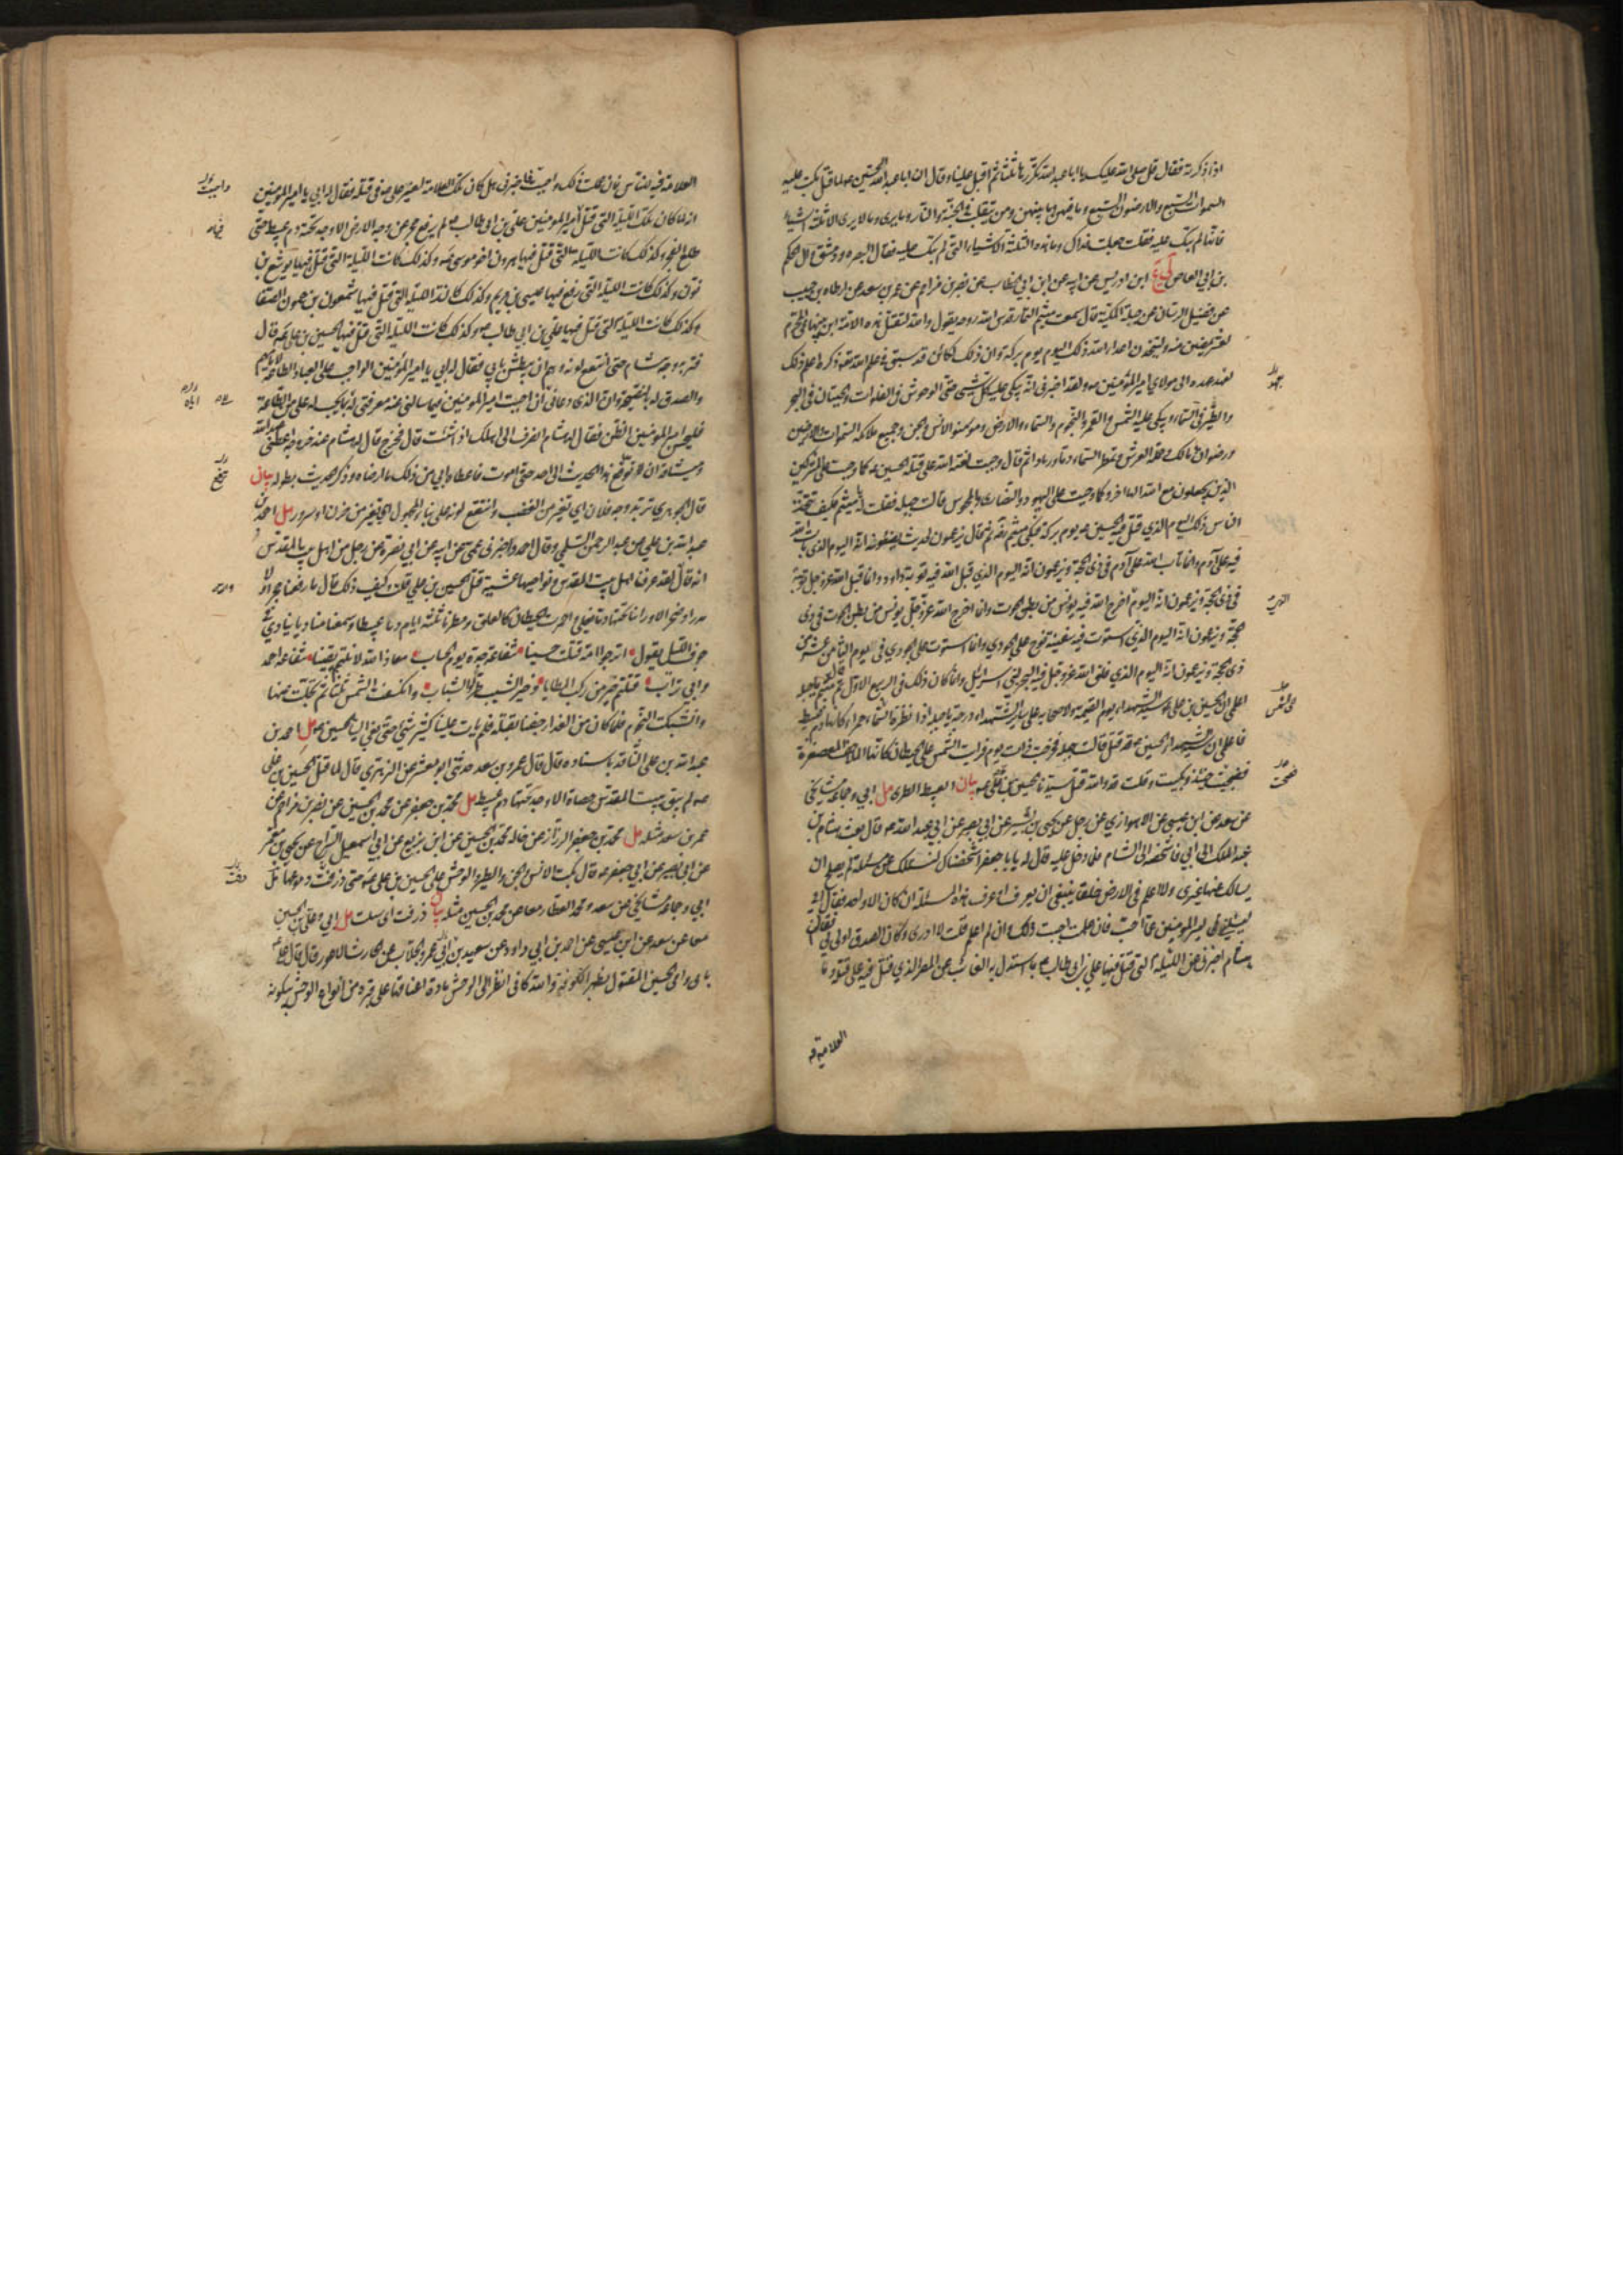 اذا ذكرته فقال قل صلى الله عليك يا ابا عبد الله تكررها ثلثا ثم اقبل علينا وقال ان ابا عبد الله الحسين ع لما قتل بكت عليه
السموات السبع والارضون السبع وما فيهن وما بينهن ومن يتقلب في الجنة والنار وما يرى وما لا يرى الا ثلثة اشياء
فانها لم تبك عليه فقلت جعلت فداك وما هذه الثلثة الاشياء التي لم تبك عليه فقال البصرة ودمشق وآل الحكم
بن ابي العاص لي ع ابن ادريس عن ابيه عن ابن ابي الخطاب عن نصر بن مزاحم عن عمر بن سعد عن ارطاة بن حبيب
عن فضيل الرسان عن جبلة المكية قال سمعت ميثم التمار قدس الله روحه يقول والله لتقتل هذه الامة ابن نبيها في المحرم
لعشر يمضين منه وليتخذن اعداء الله ذلك اليوم يوم بركة وان ذلك لكائن قد سبق في علم الله تع ذكره اعلم ذلك
لعهد عهده الى مولاي امير المؤمنين ع ولقد اخبرني انه يبكي عليه كل شيء حتى الوحوش في الفلوات والحيتان في البحر
والطير في السماء ويبكي عليه الشمس والقمر والنجوم والسماء والارض ومؤمنوا الانس والجن وجميع ملائكة السموات والارضين
ورضوان ومالك وحملة العرش وتمطر السماء دما ورمادا ثم قال وجبت لعنة الله على قتلة الحسين ع كما وجبت على المشركين
الذين يجعلون مع الله الها آخر وكما وجبت على اليهود والنصارى والمجوس قالت جبلة فقلت له يا ميثم فكيف يتخذ
الناس ذلك اليوم الذي قتل فيه الحسين ع يوم بركة فبكى ميثم رضه ثم قال يزعمون لحديث يضعونه انه اليوم الذي تاب الله
فيه على آدم وانما تاب الله على آدم في ذي الحجة ويزعمون انه اليوم الذي قبل الله فيه توبة داود وانما قبل الله عز وجل توبته
في ذي الحجة ويزعمون انه اليوم الذي اخرج الله فيه يونس من بطن الحوت وانما اخرج الله عز وجل يونس من بطن الحوت في ذي
الحجة ويزعمون انه اليوم الذي استوت فيه سفينة نوح على الجودي وانما استوت على الجودي في اليوم الثامن عشر من
ذي الحجة ويزعمون انه اليوم الذي فلق الله عز وجل فيه البحر لبني اسرائيل وانما كان ذلك في الربيع الاول ثم قال ميثم يا جبلة
اعلمي ان الحسين بن علي ع سيد الشهداء يوم القيمة ولاصحابه على سائر الشهداء درجة يا جبلة اذا نظرت السماء حمراء كانها دم عبيط
فاعلمي ان سيد الشهداء الحسين ع قد قتل قالت جبلة فخرجت ذات يوم فرايت الشمس على الحيطان كانها الملاحف المعصفرة
فصحت حينئذ وبكيت وقلت قد والله قتل سيدنا الحسين بن علي ع بيان العبيط الطري مل ابي وجماعة مشايخي
عن سعد عن ابن عيسى عن الاهوازي عن رجل عن يحيى بن بشير عن ابي بصير عن ابي عبد الله ع قال بعث هشام بن
عبد الملك الى ابي فاشخصه الى الشام فلما دخل عليه قال له يا با جعفر اشخصناك لنسئلك عن مسئلة لم يصلح ان
يسالك عنها غيري ولا اعلم في الارض خلقا ينبغي ان يعرف او عرف هذه المسئلة ان كان الا واحد فقال ابي
ليسئلني امير المؤمنين عما احب فان علمت اجبت ذلك وان لم اعلم قلت لا ادري وكان الصدق اولى بي فقال
هشام اخبرني عن الليلة التي قتل فيها علي بن ابي طالب ع بما استدل به الغائب عن المصر الذي قتل فيه على قتله وما
العلامة فيه
العلامة فيه للناس فان علمت ذلك واجبت فاخبرني هل كان تلك العلامة لغير علي ع في قتله فقال له ابي يا امير المؤمنين
انه لما كان تلك الليلة التي قتل امير المؤمنين علي بن ابي طالب ع لم يرفع حجر عن وجه الارض الا وجد تحته دم عبيط حتى
طلع الفجر وكذلك كانت الليلة التي قتل فيها هرون اخو موسى ع وكذلك كانت الليلة التي قتل فيها يوشع بن
نون وكذلك كانت الليلة التي رفع فيها عيسى بن مريم وكذلك كانت الليلة التي قتل فيها شمعون بن حمون الصفا
وكذلك كانت الليلة التي قتل فيها علي بن ابي طالب ع وكذلك كانت الليلة التي قتل فيها الحسين بن علي ع قال
فتربد وجه هشام حتى انتقع لونه وهم ان يبطش بابي فقال له ابي يا امير المؤمنين الواجب على العباد الطاعة لامامهم
والصدق له بالنصيحة وان الذي دعاني الى ان اجبت امير المؤمنين فيما سالني عنه معرفتي له بما يجب له علي من الطاعة
فليحسن امير المؤمنين الظن فقال له هشام انصرف الى اهلك اذا شئت قال فخرج فقال له هشام عند خروجه اعطني عهد الله
وميثاقه ان لا توقع هذا الحديث الى احد حتى اموت فاعطاه ابي من ذلك ما ارضاه وذكر الحديث بطوله بيان
قال الجوهري تربد وجه فلان اي تغير من الغضب وانتقع لونه على بناء المجهول اي تغير من حزن او سرور مل احمد بن
عبد الله بن علي عن عبد الرحمن السلمي وقال احمد واخبرني عمي عن ابيه عن ابي نصرة عن رجل من اهل بيت المقدس
انه قال لقد عرفنا اهل بيت المقدس ونواحيها عشية قتل الحسين بن علي قلت وكيف ذلك قال ما رفعنا حجرا ولا
مدرا ولا صخرا الا وراينا تحتها دما يغلي واحمرت الحيطان كالعلق ومطرنا ثلثة ايام دما عبيطا وسمعنا مناديا ينادي في
جوف الليل يقول اترجوا امة قتلت حسينا شفاعة جده يوم الحساب معاذ الله لا نلتم يقينا شفاعة احمد
وابي تراب قتلتم خير من ركب المطايا وخير الشيب طرا والشباب وانكسفت الشمس ثلثا ثم تجلت عنها
وانشبكت النجوم فلما كان من الغد ارجفنا بقتله فلم يات علينا كثير شيء حتى نعي الينا الحسين ع مل احمد بن
عبد الله بن علي الناقد باسناده قال قال عمر بن سعد حدثني ابو معشر عن الزهري قال لما قتل الحسين بن علي
ع لم يبق بيت المقدس حصاة الا وجد تحتها دم عبيط مل محمد بن جعفر عن محمد بن الحسين عن نصر بن مزاحم عن
عمر بن سعد مثله مل محمد بن جعفر الرزاز عن خاله محمد بن الحسين عن ابن بزيع عن ابي اسمعيل السراج عن يحيى بن معمر
عن ابي بصير عن ابي جعفر ع قال بكت الانس والجن والطير والوحش على الحسين بن علي ع حتى ذرفت دموعها مل
ابي وجماعة مشايخي عن سعد ومحمد العطار معا عن محمد بن الحسين مثله بيان ذرفت اي سالت مل ابي وعلي بن الحسين
معا عن سعد عن ابن عيسى عن احمد بن ابي داود عن سعيد بن ابي عمرو الجلاب عن الحارث الاعور قال قال علي ع
بابي وامي الحسين المقتول بظهر الكوفة والله كاني انظر الى الوحش مادة اعناقها على قبره من انواع الوحش يبكونه